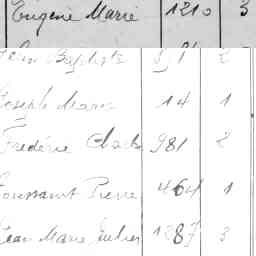 Eugène Marie 1210 3
Jean Baptiste 2
Joseph Marie 14 1
Frédéric 981 2
Toussaint Pierre 464 1
Jean Marie 1287 3